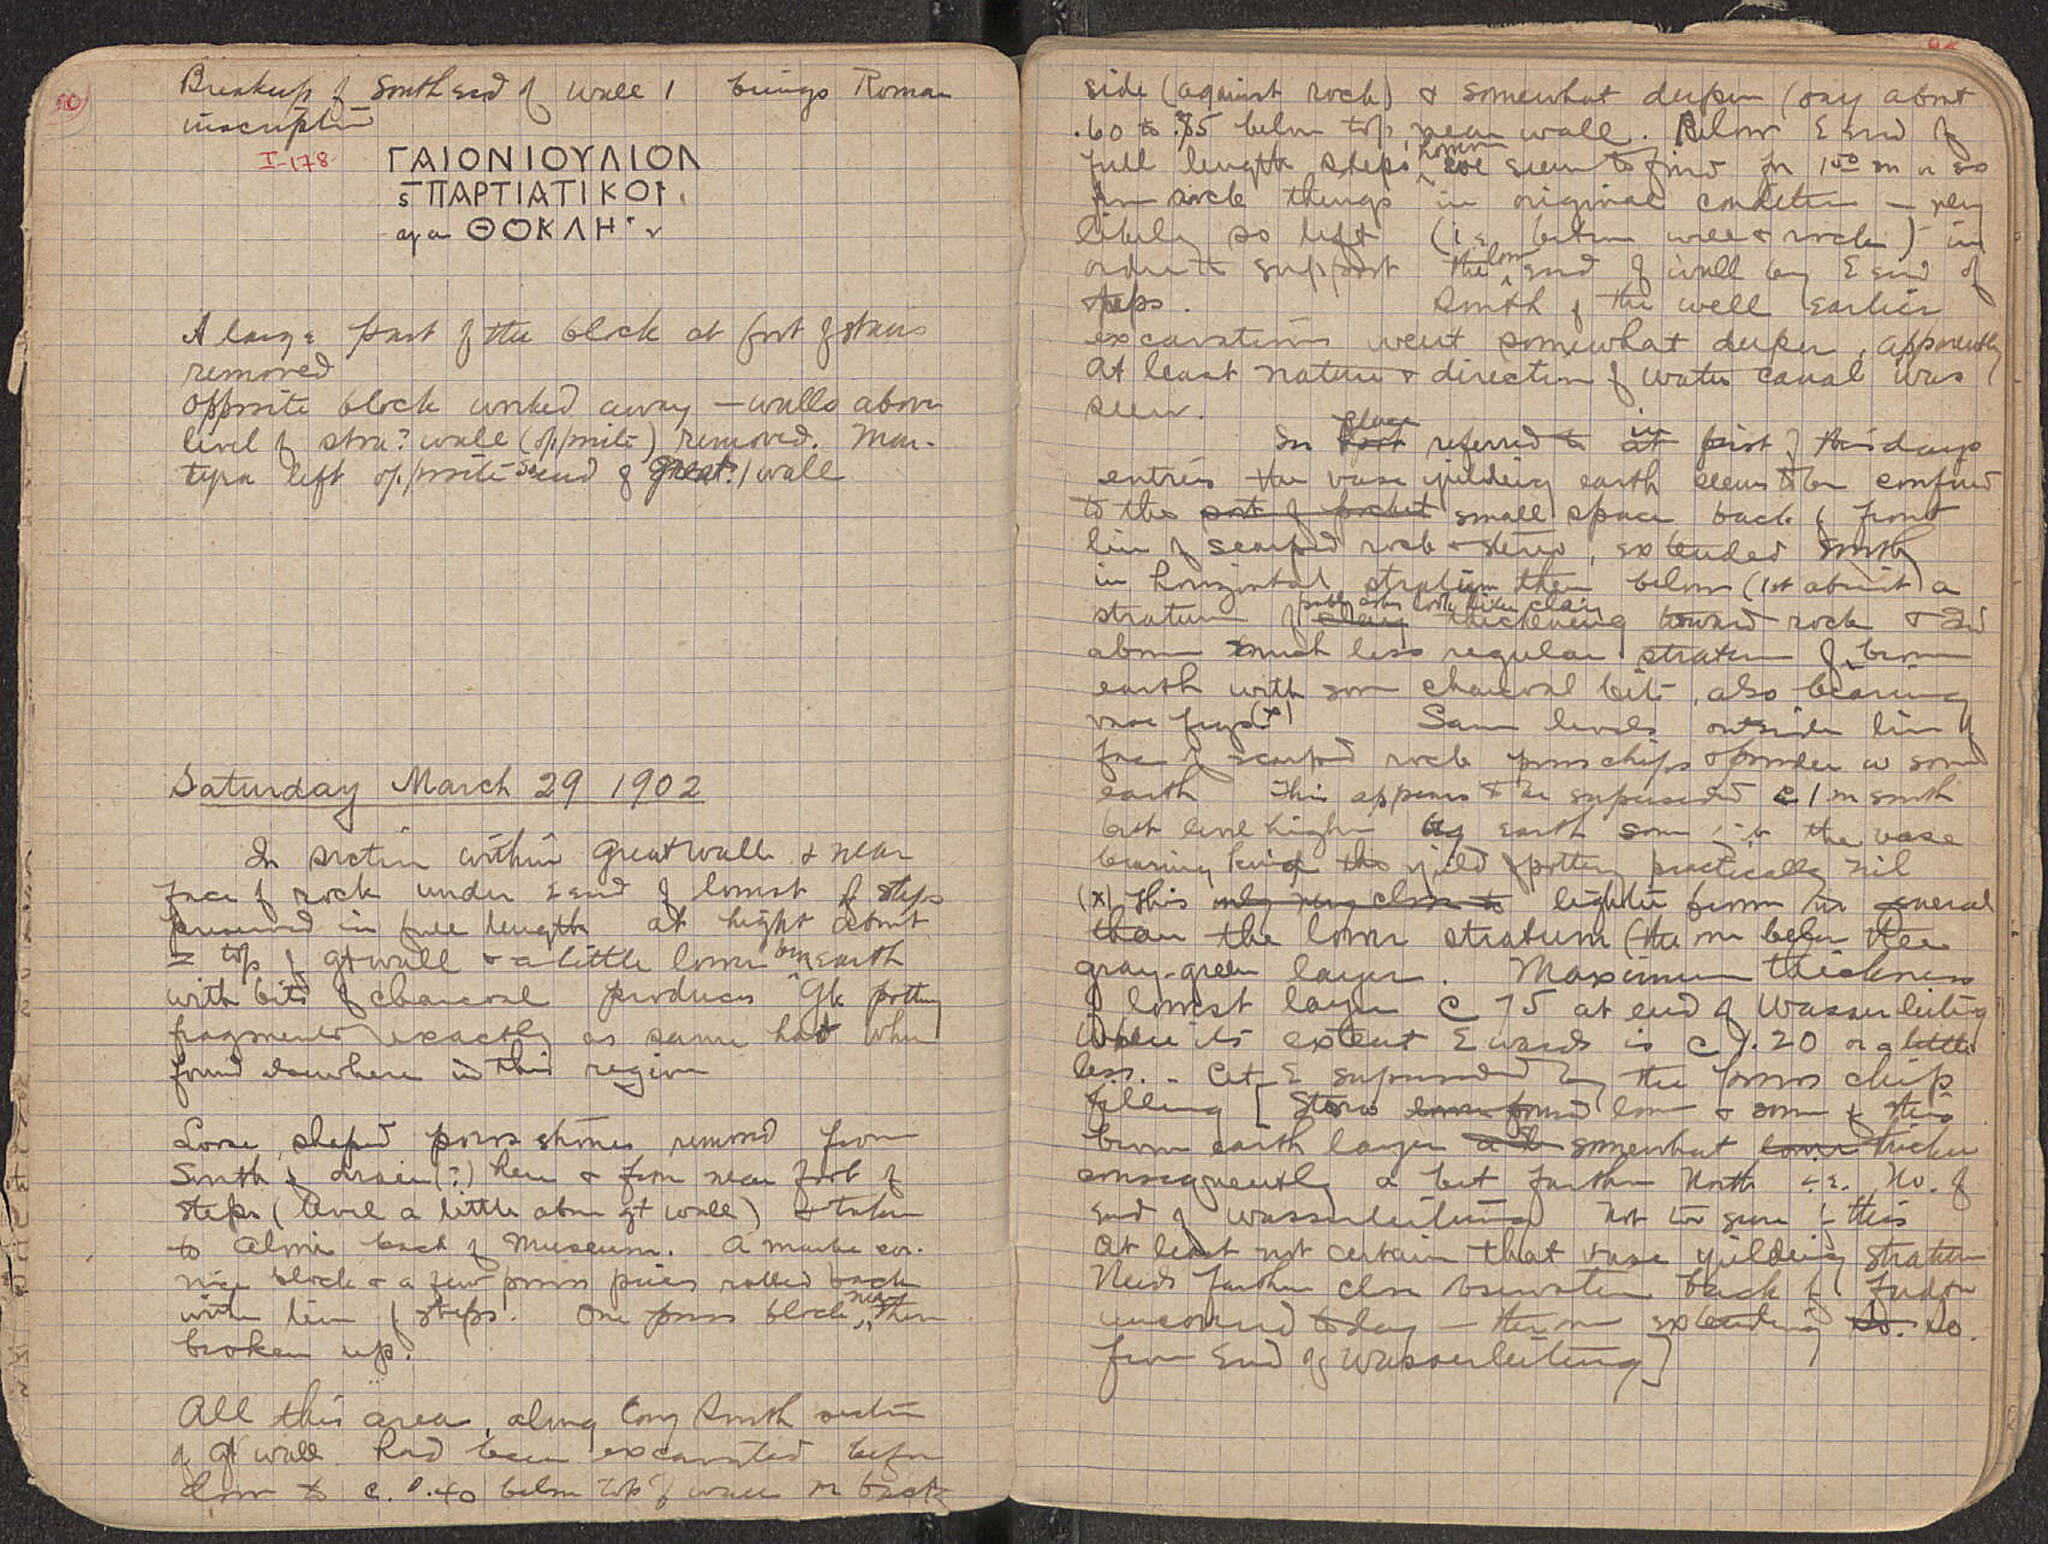 50
Breakup of South end of wall 1 brings Roman
inscription
I-178
ΓΑΙΟΝΙΟΥΛΙΟΝ
ΣΠΑΡΤΙΑΤΙΚΟΝ
ΘΟΚΛΗ
A large part of the block at foot of stairs
removed
Opposite block worked away – walls above
level of wall (opposite) removed. Mar-
tyra left opposite end of great wall
Saturday March 29 1902
In section within great wall & near
face of rock under E end of lowest of steps
preserved in full length at hight about
= top of gt wall & a little lower earth
with bits of charcoal produces Gk pottery
fragments exactly as same had when
found elsewhere in this region
Loose, shaped poros stones removed from
South of drain (?) here & from near foot of
steps (level a little above gt wall) & taken
to back of Museum. A marble cor-
nice block & a few poros pieces rolled back
with line of steps. One poros block near there
broken up.
All this area, along long South section
of gt wall had been excavated before
down to c. 0.40 below top of wall on back
side (against rock) & somewhat deeper (say about
.60 to .75 below top near wall. Below E end of
full length steps, however seem to find for 1.50 m or so
in original condition – very
likely so left (i.e. between wall & rock) in
order to support the low end of wall by E end of
steps. South of the well earlier
excavations went somewhat deeper, apparently
At least nature & direction of water canal was
seen.
In place referred to in first of this days
entries the vase yielding earth seems to be confined
to this sort of pocket small space back of front
line of scarped rock & steps, extended South
in horizontal stratum then below (1st about) a
stratum of looks like clay thickening toward rock &
above much less regular stratum of brown
earth with some charcoal bits, also bearing
vase frgs (x) Same levels outside line of
face of scarped rock poros chips & powder w some
earth This appears to be superseded c 1 m south
but level higher by earth some the vase
bearing kind yield of pottery practically nil
(x) This only very close to lighter brown in general
than the lower stratum (the one below the
gray-green layer. Maximum thickness
of lowest layer c 75 at end of Wasserleitung
Where its extent E wards is c 1.20 or a little
less. Cut E superseded by the poros chip
filling [Stereo found low & some of this
brown earth layer somewhat thicker
consequently a bit farther North i.e. No. of
end of Wasserleitung Not too sure of this
At least not certain that vase yielding stratum
Needs further close observation back of
uncovered today – the one extending So.
from End of Wasserleitung]